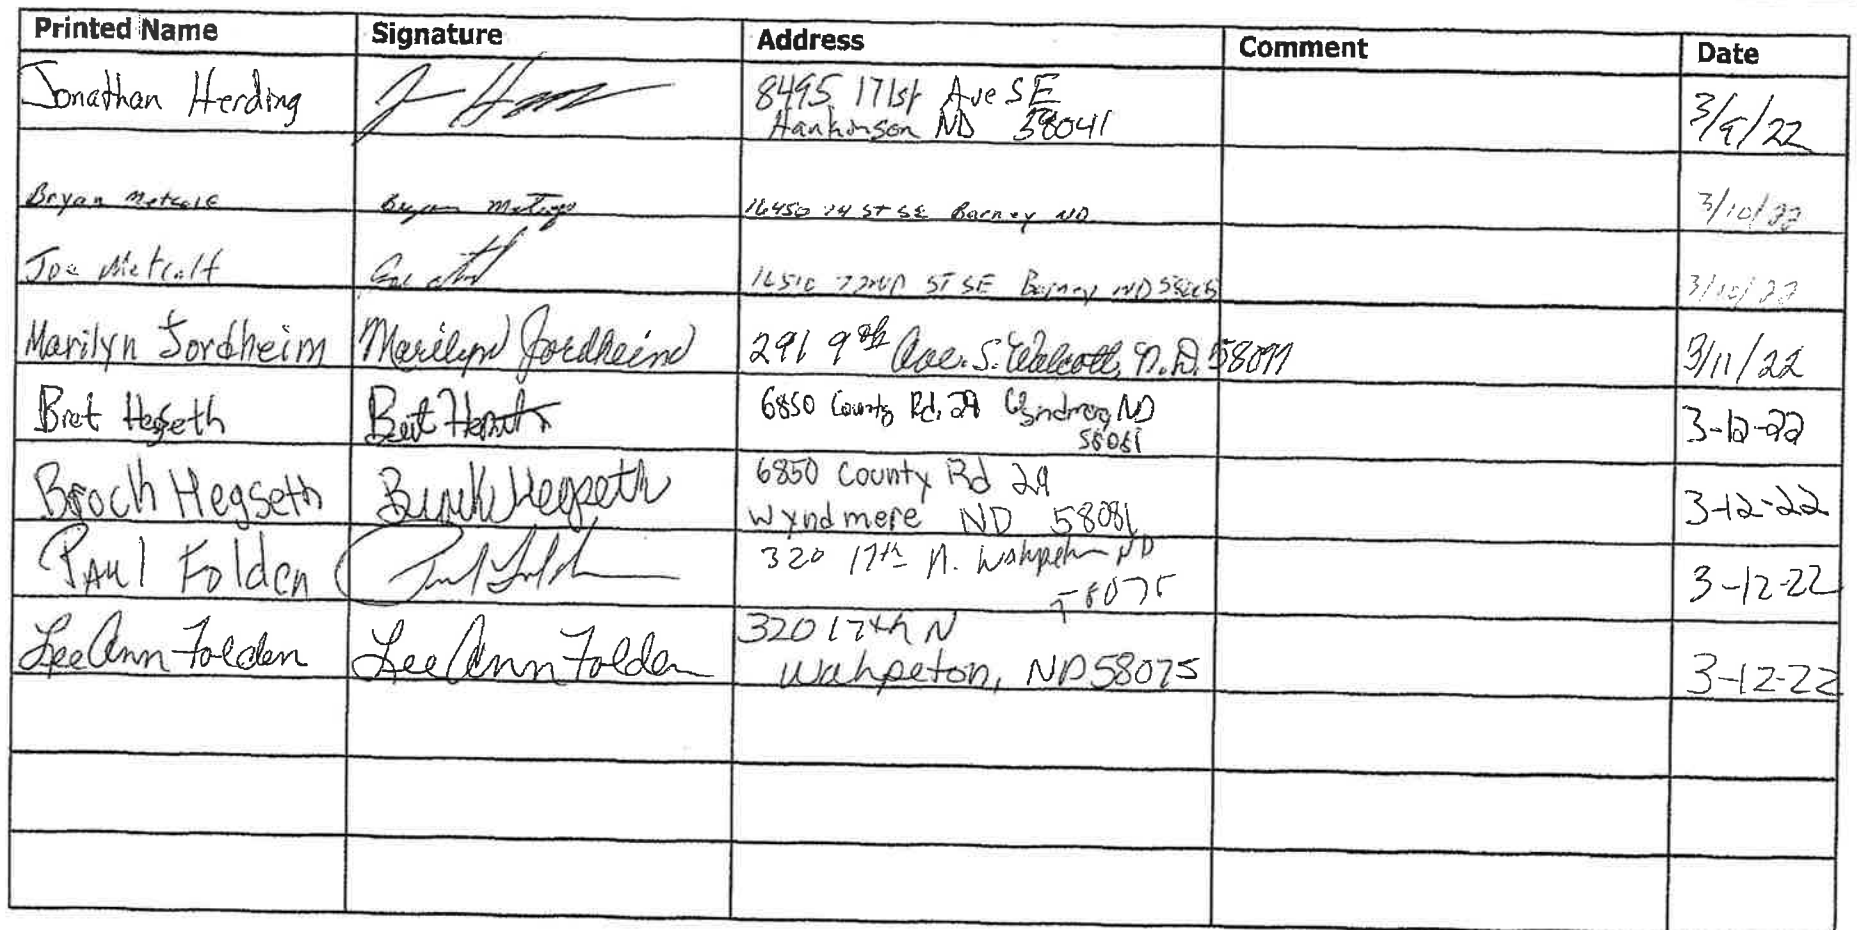 Printed Name Signature Address Comment Date
Jonathan Herding 8495 171st Ave SE
Hankinson ND 58041 3/9/22
Bryan Metcalf Bryan Metcalf 16450 74 ST SE Barney ND 3/10/22
Joe Metcalf 16510 72ND ST SE Barney ND 58008 3/10/22
Marilyn Jordheim Marilyn Jordheim 291 9th Ave. S. Walcott, N.D. 58077 3/11/22
Bret Hegseth Bret Hegseth 6850 County Rd. 29 Wyndmere, ND
58081 3-12-22
Broch Hegseth Hegseth 6850 County Rd 29
Wyndmere ND 58081 3-12-22
PAul Folden Paul Folden 320 17th N. Wahpeton ND
58075 3-12-22
LeeAnn Folden LeeAnn Folden 320 17th N
Wahpeton, ND 58075 3-12-22